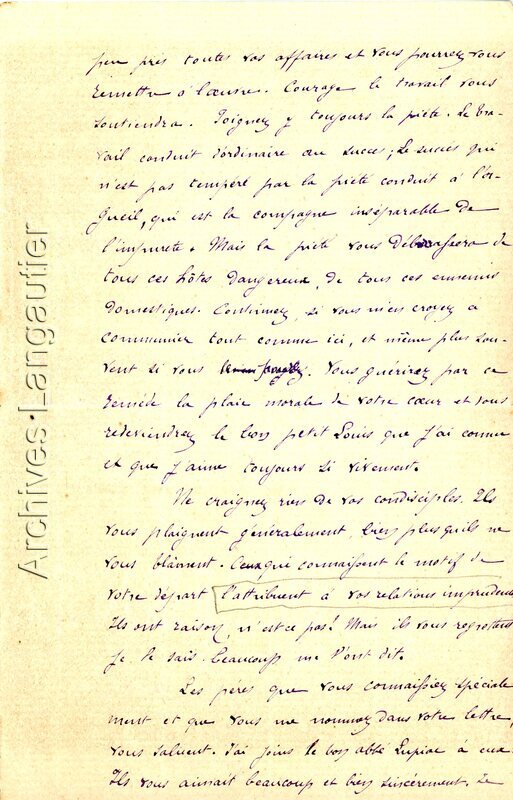 peu près toutes vos affaires et vous pourrez vous
remettre à l'œuvre. Courage le travail vous
soutiendra. Joignez y toujours la piété. Le tra-
vail conduit d'ordinaire au succès; Le succès qui
n'est pas tempéré par la piété conduit à l'or-
gueil, qui est la compagne inséparable de
l'impureté. Mais la piété vous débarrassera de
tous ces hôtes dangereux, de tous ces ennemis
domestiques. Continuez, si vous m'en croyez a
communier tout comme ici, et même plus sou-
vent si vous. Vous guérirez par ce
remède la plaie morale de votre cœur et vous
redeviendrez le bon petit Louis que j'ai connu
et que j'aime toujours si vivement.
Ne craignez rien de vos condisciples. Ils
vous plaignent généralement, bien plus qu'ils ne
vous blâment. Ceux qui connaissent le motif de
votre départ l'attribuent à vos relations imprudentes
Ils ont raison, n'est ce pas! Mais il vous regrettent
je le sais. beaucoup me l'ont dit.
Les pères que vous connaissiez spéciale
ment et que vous me nommez dans votre lettre,
vous saluent. J'ai joins le bon abbé Lupiac à eux.
Ils vous aimait beaucoup et bien sincèrement. Je
Archives-Langautier